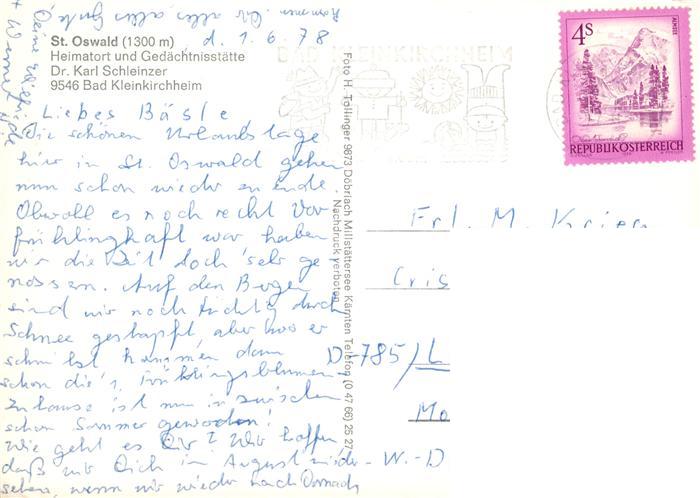 St. Oswald (1300 m)
Heimatort und Gedächtnisstätte
Dr. Karl Schleinzer
9546 Bad Kleinkirchheim
d. 1.6.78
Liebes Bäsle,
Die schönen Urlaubstage
hier in St. Oswald gehen
nun schon wieder zu ende.
Obwohl es noch recht vor
frühlinghaft war haben
wir die Zeit doch sehr ge
nossen. Auf den Bergen
sind wir noch tüchtig durch
Schnee gestapft, aber wo er
schmilzt kommen dann
schon die 1. Frühlingsblumen.
Zuhause ist nun inzwischen
schon Sommer geworden!
Wie geht es Dir? Wir hoffen
daß wir Dich im August wieder
sehen, wenn wir wieder nach
kommen. Dir alles Gute,
Deine
+ Werner
Foto H. Tollinger 9873 Döbriach Millstättersee Kärnten Telefon (0 47 66) 25 27
Nachdruck verboten
BAD KLEINKIRCHHEIM
4S
ALMSEE
REPUBLIK ÖSTERREICH
Frl. M.
Cris
D-785/L
Mo
W.-D